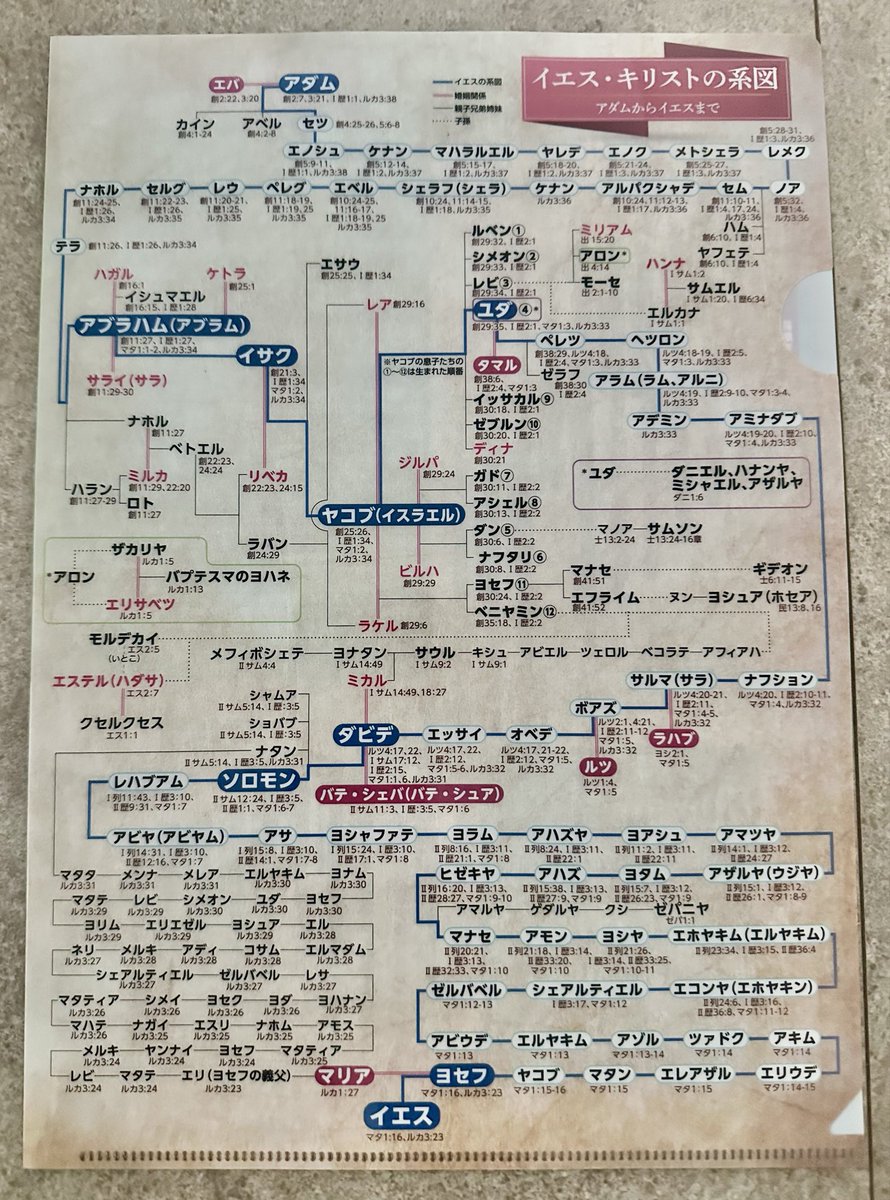 イエス・キリストの系図
アダムからイエスまで
イエスの系図
婚姻関係
親子兄弟姉妹
子孫
エバ
創2:22、3:20
アダム
創2:7、3:21、Ⅰ歴1:1、ルカ3:38
カイン
創4:1-24
アベル
創4:2-8
セツ
創4:25-26、5:6-8
エノシュ
創5:9-11、
Ⅰ歴1:1、ルカ3:38
ケナン
創5:12-14、
Ⅰ歴1:2、ルカ3:37
マハラルエル
創5:15-17、
Ⅰ歴1:2、ルカ3:37
ヤレデ
創5:18-20、
Ⅰ歴1:2、ルカ3:37
エノク
創5:21-24、
Ⅰ歴1:3、ルカ3:37
メトシェラ
創5:25-27、
Ⅰ歴1:3、ルカ3:37
創5:28-31、
Ⅰ歴1:3、ルカ3:36
レメク
ナホル
創11:24-25、
Ⅰ歴1:26、
ルカ3:34
セルグ
創11:22-23、
Ⅰ歴1:26、
ルカ3:35
レウ
創11:20-21、
Ⅰ歴1:25、
ルカ3:35
ペレグ
創11:18-19、
Ⅰ歴1:19、25
ルカ3:35
エベル
創10:24-25、
11:16-17、
Ⅰ歴1:18-19、25
ルカ3:35
シェラフ(シェラ)
創10:24、11:14-15、
Ⅰ歴1:18、ルカ3:35
ケナン
ルカ3:36
アルパクシャデ
創10:24、11:12-13、
Ⅰ歴1:17、ルカ3:36
セム
創11:10-11、
Ⅰ歴1:4、17、24、
ルカ3:36
ノア
創5:32、
Ⅰ歴1:4、
ルカ3:36
ハム
創6:10、Ⅰ歴1:4
ヤフェテ
創6:10、Ⅰ歴1:4
テラ
創11:26、Ⅰ歴1:26、ルカ3:34
ハガル
創16:1
ケトラ
創25:1
イシュマエル
創16:15、Ⅰ歴1:28
アブラハム(アブラム)
創11:27、Ⅰ歴1:27、
マタ1:1-2、ルカ3:34
サライ(サラ)
創11:29-30
イサク
創21:3、
Ⅰ歴1:34
マタ1:2、
ルカ3:34
エサウ
創25:25、Ⅰ歴1:34
レア
創29:16
※ヤコブの息子たちの
①~⑫は生まれた順番
ルベン①
創29:32、Ⅰ歴2:1
シメオン②
創29:33、Ⅰ歴2:1
レビ③
創29:34、Ⅰ歴2:1
ユダ④*
創29:35、Ⅰ歴2:1、マタ1:3、ルカ3:33
ミリアム
出15:20
アロン*
出4:14
モーセ
出2:1-10
ハンナ
Ⅰサム1:2
サムエル
Ⅰサム1:20、Ⅰ歴6:34
エルカナ
Ⅰサム1:1
タマル
創38:6、
Ⅰ歴2:4、マタ1:3
ペレツ
創38:29、ルツ4:18、
Ⅰ歴2:4、マタ1:3、ルカ3:33
ゼラフ
創38:30
Ⅰ歴2:4
ヘツロン
ルツ4:18-19、Ⅰ歴2:5、
マタ1:3、ルカ3:33
アラム(ラム、アルニ)
ルツ4:19、Ⅰ歴2:9-10、マタ1:3-4、
ルカ3:33
アデミン
ルカ3:33
アミナダブ
ルツ4:19-20、Ⅰ歴2:10、
マタ1:4、ルカ3:33
イッサカル⑨
創30:18、Ⅰ歴2:1
ゼブルン⑩
創30:20、Ⅰ歴2:1
ディナ
創30:21
ナホル
創11:27
ベトエル
創22:23、
24:24
ミルカ
創11:29、22:20
ハラン
創11:27-29
ロト
創11:27
リベカ
創22:23、24:15
ラバン
創24:29
ジルパ
創29:24
ガド⑦
創30:11、Ⅰ歴2:2
アシェル⑧
創30:13、Ⅰ歴2:2
*ユダ
ダニエル、ハナンヤ、
ミシャエル、アザルヤ
ダニ1:6
ヤコブ(イスラエル)
創25:26、
Ⅰ歴1:34、
マタ1:2、
ルカ3:34
ビルハ
創29:29
ラケル
創29:6
ダン⑤
創30:6、Ⅰ歴2:2
ナフタリ⑥
創30:8、Ⅰ歴2:2
ヨセフ⑪
創30:24、Ⅰ歴2:2
ベニヤミン⑫
創35:18、Ⅰ歴2:2
マノア
士13:2-24
サムソン
士13:24-16章
マナセ
創41:51
ギデオン
士6:11-15
エフライム
創41:52
ヌン
ヨシュア(ホセア)
民13:8、16
*アロン
ザカリヤ
ルカ1:5
バプテスマのヨハネ
ルカ1:13
エリサベツ
ルカ1:5
モルデカイ
エス2:5
(いとこ)
エステル(ハダサ)
エス2:7
クセルクセス
エス1:1
メフィボシェテ
Ⅱサム4:4
ヨナタン
Ⅰサム14:49
サウル
Ⅰサム9:2
キシュ
Ⅰサム9:1
アビエル
ツェロル
ベコラテ
アフィアハ
ミカル
Ⅰサム14:49、18:27
シャムア
Ⅱサム5:14、Ⅰ歴3:5
ショバブ
Ⅱサム5:14、Ⅰ歴3:5
ナタン
Ⅱサム5:14、Ⅰ歴3:5、ルカ3:31
ダビデ
ルツ4:17、22
Ⅰサム17:12、
Ⅰ歴2:15、
マタ1:1、6、ルカ3:31
エッサイ
ルツ4:17、22、
Ⅰ歴2:12、
マタ1:5-6、ルカ3:32
オベデ
ルツ4:17、21-22
Ⅰ歴2:12、マタ1:5、
ルカ3:32
ボアズ
ルツ2:1、4:21、
Ⅰ歴2:11-12
マタ1:5、
ルカ3:32
ルツ
ルツ1:4、
マタ1:5
サルマ(サラ)
ルツ4:20-21、
Ⅰ歴2:11、
マタ1:4-5、
ルカ3:32
ラハブ
ヨシ2:1、
マタ1:5
ナフション
ルツ4:20、Ⅰ歴2:10-11、
マタ1:4、ルカ3:32
バテ・シェバ(バテ・シュア)
Ⅱサム11:3、Ⅰ歴3:5、マタ1:6
ソロモン
Ⅱサム12:24、Ⅰ歴3:5、
Ⅱ歴1:1、マタ1:6-7
レハブアム
Ⅰ列11:43、Ⅰ歴3:10、
Ⅱ歴9:31、マタ1:7
アビヤ(アビヤム)
Ⅰ列14:31、Ⅰ歴3:10、
Ⅱ歴12:16、マタ1:7
アサ
Ⅰ列15:8、Ⅰ歴3:10、
Ⅱ歴14:1、マタ1:7-8
ヨシャファテ
Ⅰ列15:24、Ⅰ歴3:10、
Ⅱ歴17:1、マタ1:8
ヨラム
Ⅱ列8:16、Ⅰ歴3:11、
Ⅱ歴21:1、マタ1:8
アハズヤ
Ⅱ列8:24、Ⅰ歴3:11、
Ⅱ歴22:1
ヨアシュ
Ⅱ列11:2、Ⅰ歴3:11、
Ⅱ歴22:11
アマツヤ
Ⅱ列14:1、Ⅰ歴3:12、
Ⅱ歴24:27
ヒゼキヤ
Ⅱ列16:20、Ⅰ歴3:13、
Ⅱ歴28:27、マタ1:9-10
アハズ
Ⅱ列15:38、Ⅰ歴3:13、
Ⅱ歴27:9、マタ1:9
ヨタム
Ⅱ列15:7、Ⅰ歴3:12、
Ⅱ歴26:23、マタ1:9
アザルヤ(ウジヤ)
Ⅱ列15:1、Ⅰ歴3:12、
Ⅱ歴26:1、マタ1:8-9
アマルヤ
ゲダルヤ
クシ
ゼパニヤ
ゼパ1:1
マナセ
Ⅱ列20:21、
Ⅰ歴3:13、
Ⅱ歴32:33、マタ1:10
アモン
Ⅱ列21:18、Ⅰ歴3:14、
Ⅱ歴33:20、
マタ1:10
ヨシヤ
Ⅱ列21:26、
Ⅰ歴3:14、Ⅱ歴33:25、
マタ1:10-11
エホヤキム(エルヤキム)
Ⅱ列23:34、Ⅰ歴3:15、Ⅱ歴36:4
ゼルバベル
マタ1:12-13
シェアルティエル
Ⅰ歴3:17、マタ1:12
エコンヤ(エホヤキン)
Ⅱ列24:6、Ⅰ歴3:16、
Ⅱ歴36:8、マタ1:11-12
アビウデ
マタ1:13
エルヤキム
マタ1:13
アゾル
マタ1:13-14
ツァドク
マタ1:14
アキム
マタ1:14
マタタ
ルカ3:31
メンナ
ルカ3:31
メレア
ルカ3:31
エルヤキム
ルカ3:30
ヨナム
ルカ3:30
マタテ
ルカ3:29
レビ
ルカ3:29
シメオン
ルカ3:30
ユダ
ルカ3:30
ヨセフ
ルカ3:30
ヨリム
ルカ3:29
エリエゼル
ルカ3:29
ヨシュア
ルカ3:29
エル
ルカ3:28
ネリ
ルカ3:27
メルキ
ルカ3:28
アディ
ルカ3:28
コサム
ルカ3:28
エルマダム
ルカ3:28
シェアルティエル
ルカ3:27
ゼルバベル
ルカ3:27
レサ
ルカ3:27
マタティア
ルカ3:26
シメイ
ルカ3:26
ヨセク
ルカ3:26
ヨダ
ルカ3:26
ヨハナン
ルカ3:27
マハテ
ルカ3:26
ナガイ
ルカ3:25
エスリ
ルカ3:25
ナホム
ルカ3:25
アモス
ルカ3:25
メルキ
ルカ3:24
ヤンナイ
ルカ3:24
ヨセフ
ルカ3:24
マタティア
ルカ3:25
レビ
ルカ3:24
マタテ
ルカ3:24
エリ(ヨセフの義父)
ルカ3:23
マリア
ルカ1:27
ヨセフ
マタ1:16、ルカ3:23
ヤコブ
マタ1:15-16
マタン
マタ1:15
エレアザル
マタ1:15
エリウデ
マタ1:14-15
イエス
マタ1:16、ルカ3:23